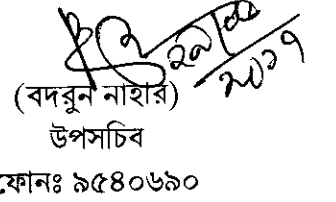 (বদরুন নাহার)
উপসচিব
ফোনঃ ৯৫৪০৬৯০